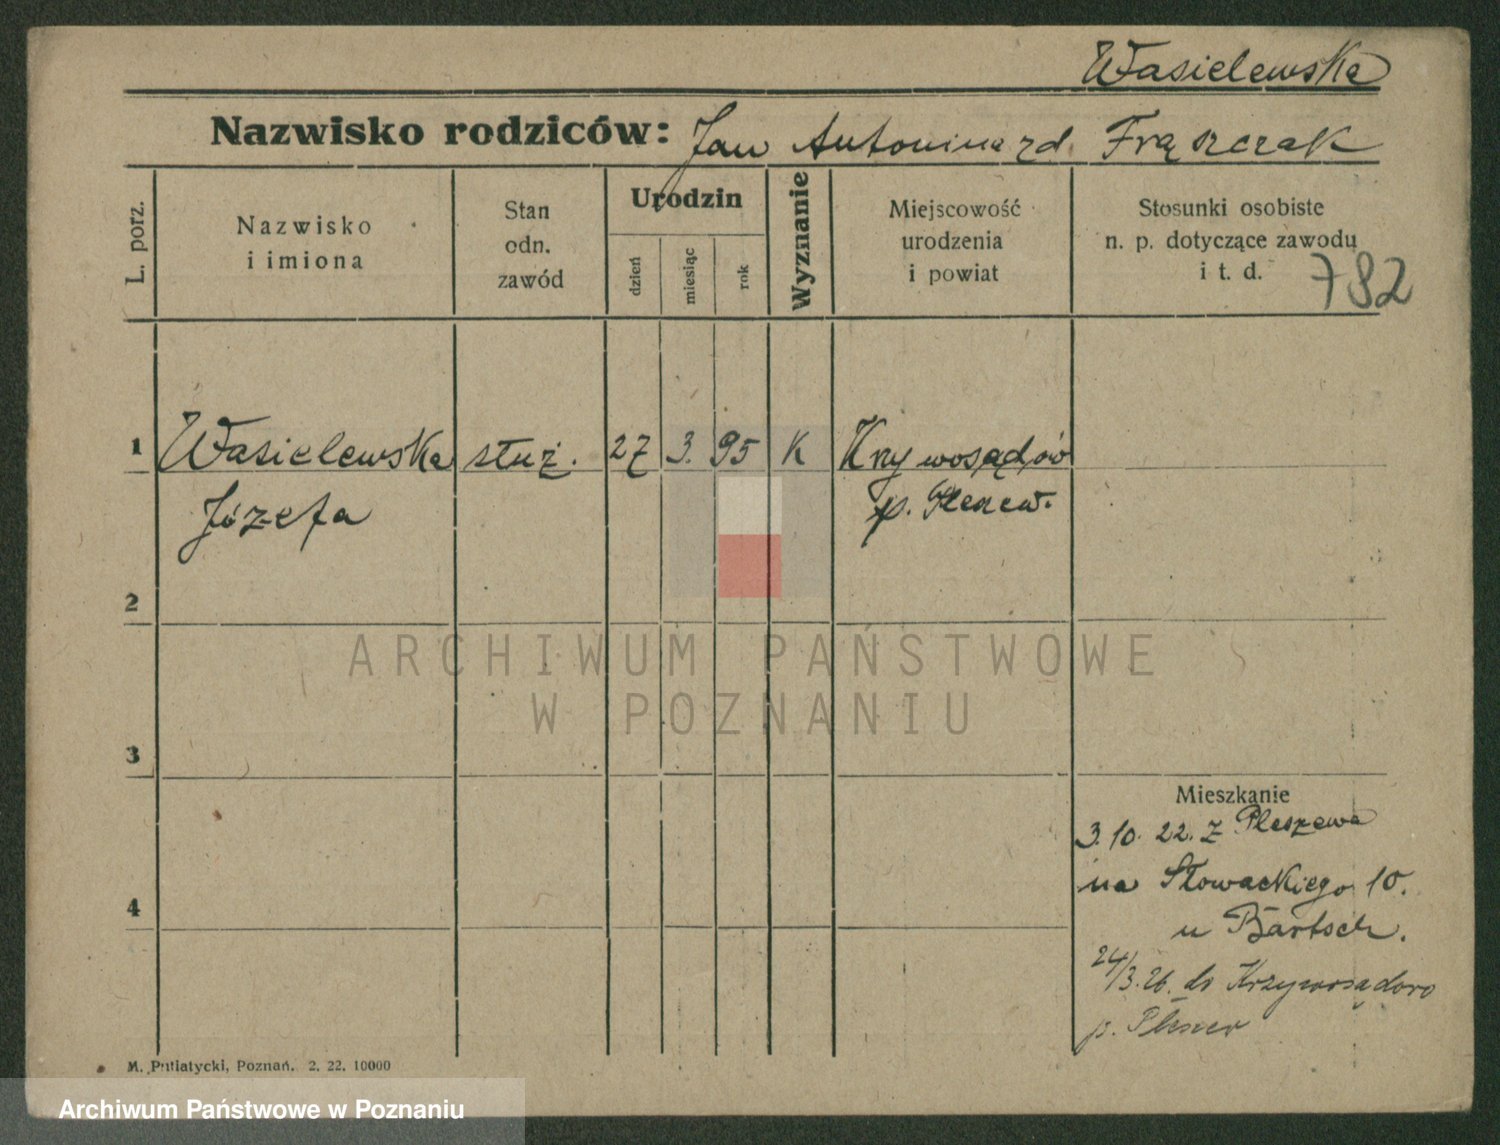 Wasielewska
Nazwisko rodziców: Jan Antonina zd. Frąszczak
L. porz.
Nazwisko
i imiona
Stan
odn.
zawód
Urodzin
dzień
miesiąc
rok
Wyznanie
Miejscowość
urodzenia
i powiat
Stosunki osobiste
n. p. dotyczące zawodu
i t. d.
782
1 Wasielewska służ. 27 3. 95 K Krzywosądów
Józefa p. Pleszew.
2
ARCHIWUM PAŃSTWOWE
W POZNANIU
3
Mieszkanie
3. 10. 22. z Pleszewa
na Słowackiego 10.
4
u Bartsch.
24/3. 26. do Krzywosądowo
p. Pleszew
M. Putiatycki, Poznań. 2. 22. 10000
Archiwum Państwowe w Poznaniu